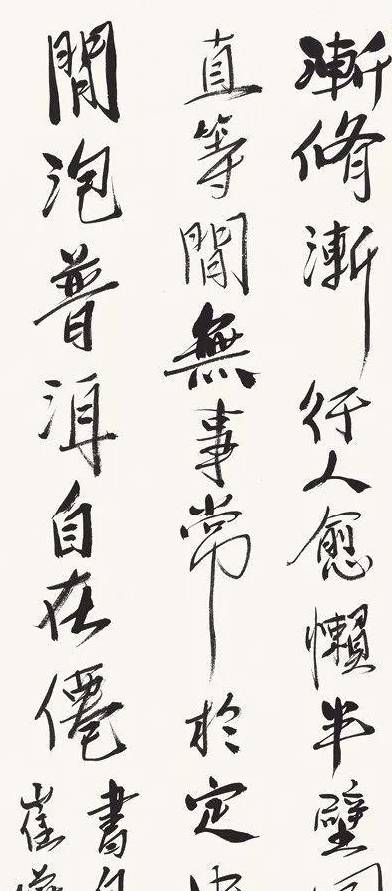 漸脩漸行人愈懶半壁
直等閒無事常於定
閒泡普洱自在僊
書
崔